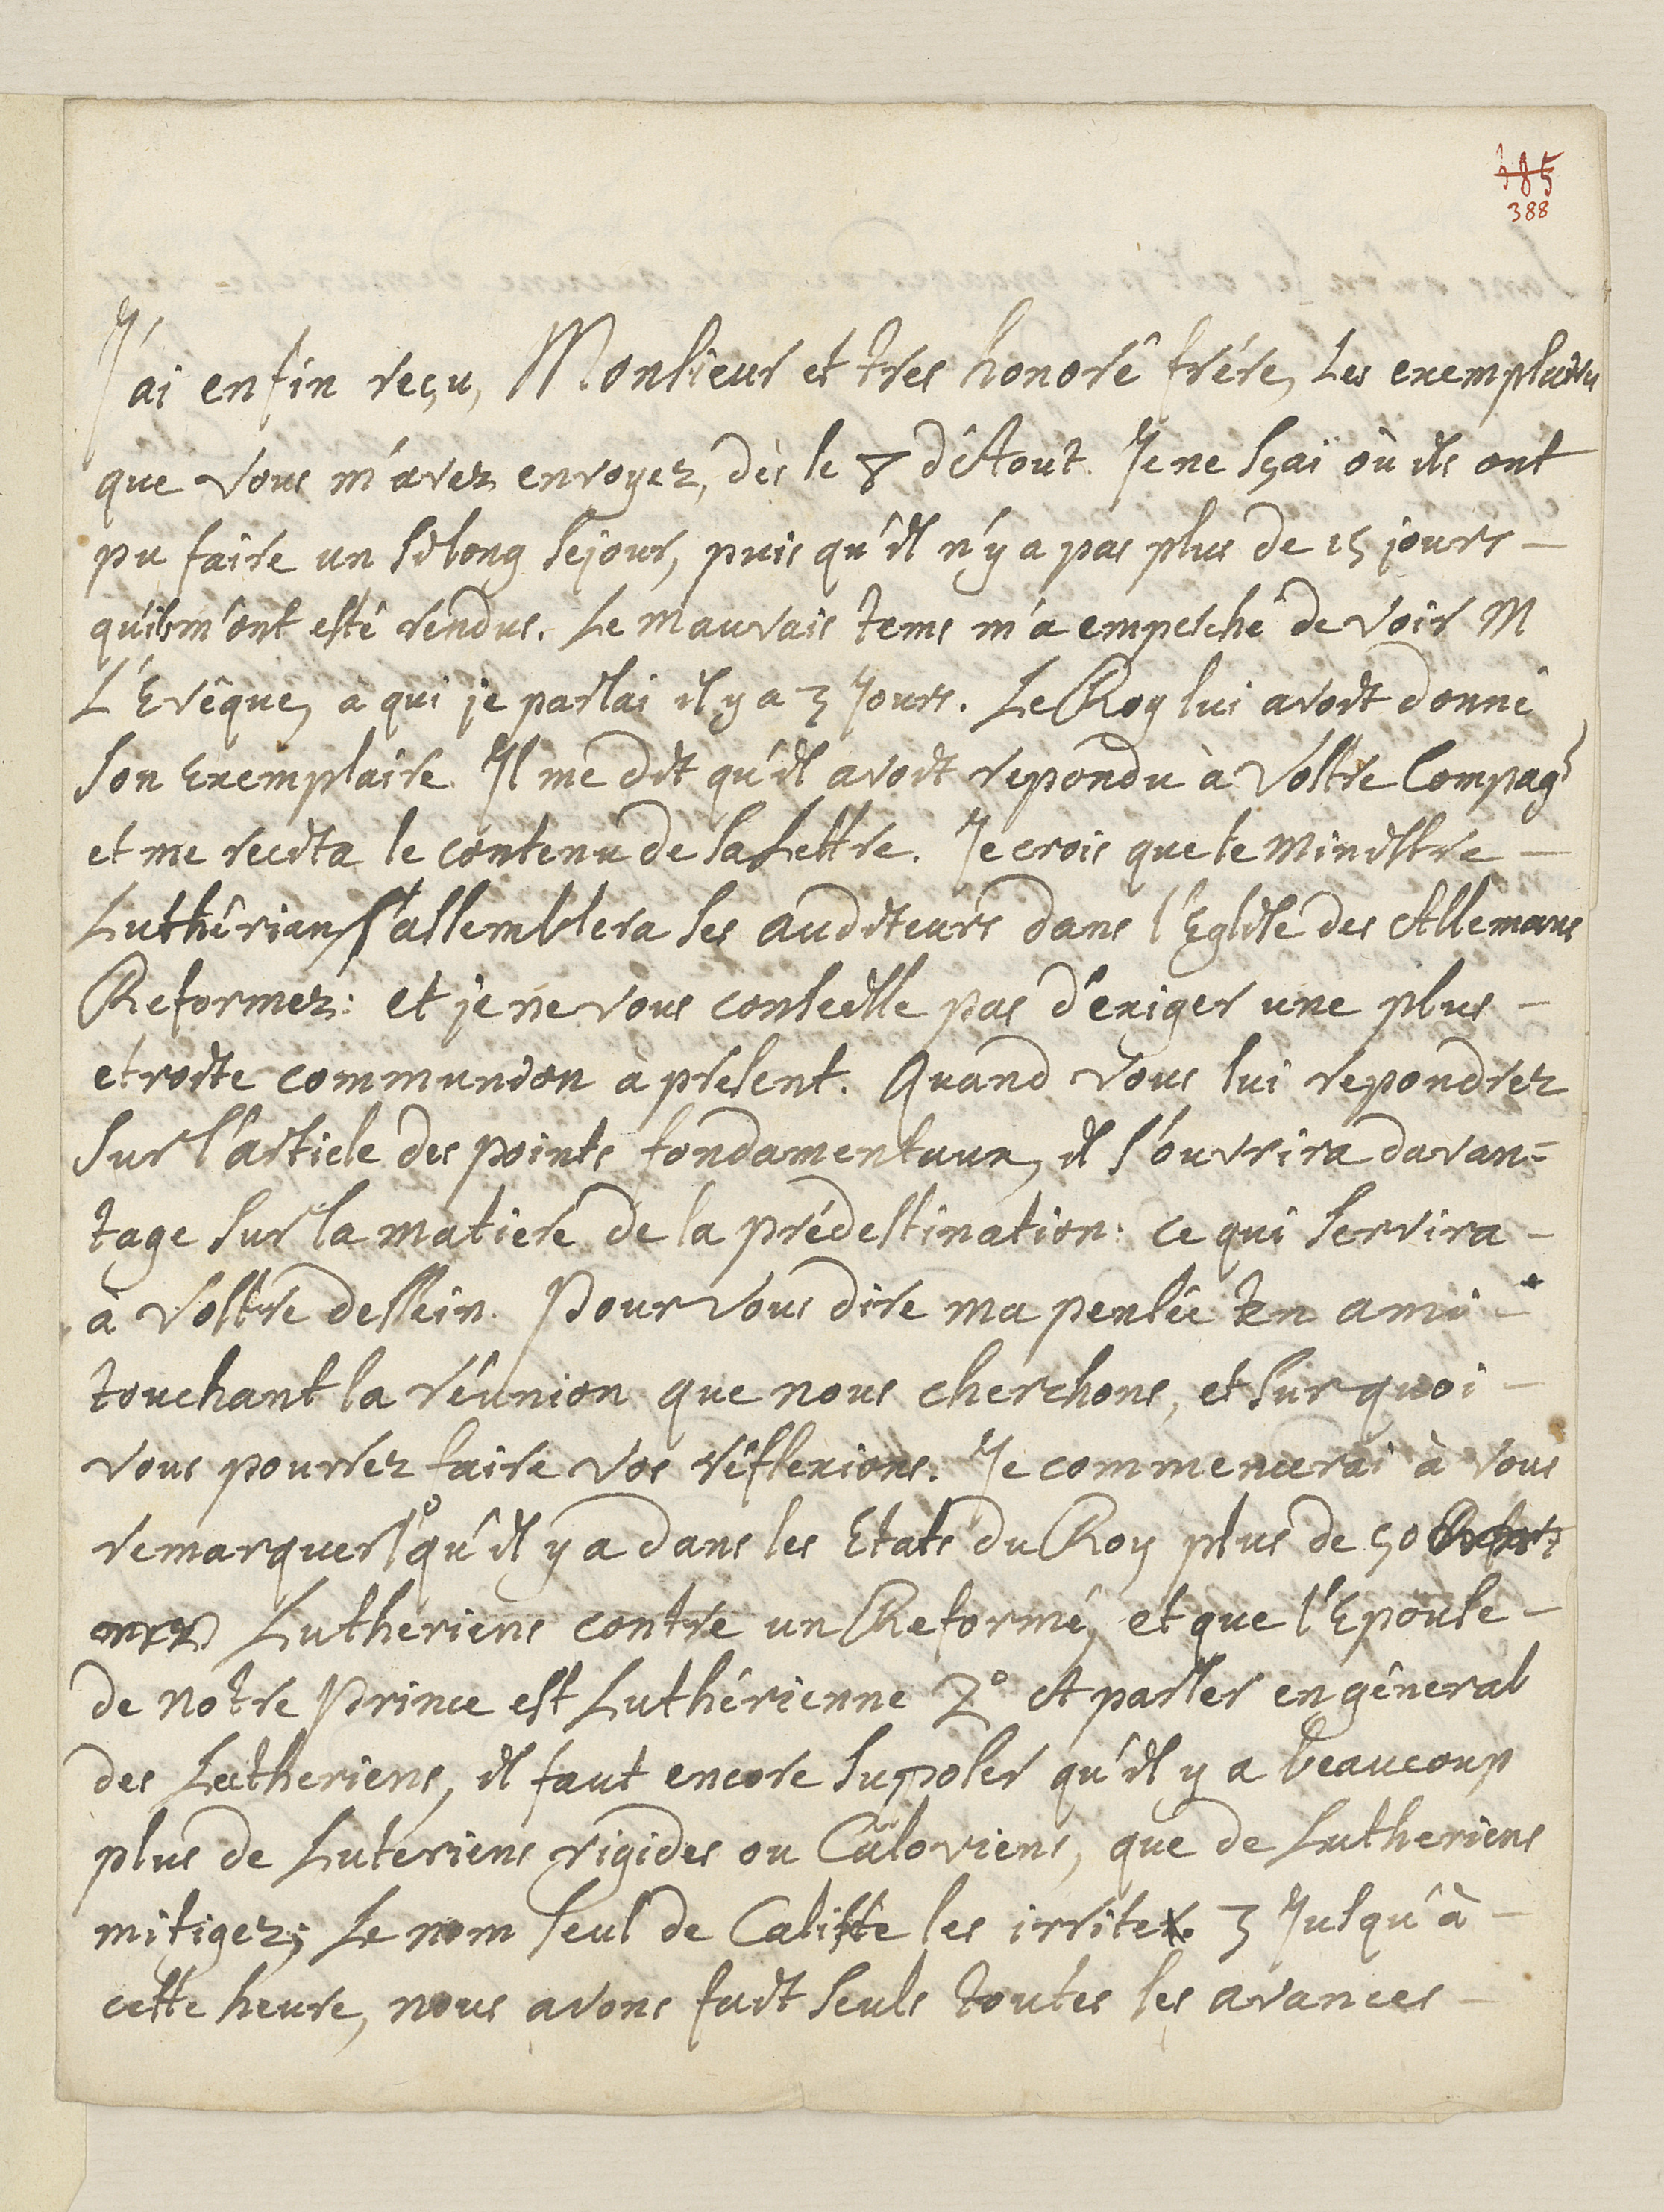 385
388
J'ai enfin reçu, Monsieur et tres honoré frére, Les exemplaires
que vous m'avez envoyez, dès le 8 d'Aout. Je ne sçai où ils ont
pu faire un si long sejour, puis qu'il n'y a pas plus de 15 jours –
qu'ils m'ont esté rendus. Le mauvais tems m'a empesché de voir M
L'Evêque, à qui je parlai il y a 3 Jours. Le Roy lui avoit donné
son Exemplaire. Il me dit qu'il avoit repondu à Vostre Compag
et me recita le contenu de sa Lettre. Je crois que le Ministre –
Luthérien assemblera ses auditeurs dans l'Eglise des Allemans
Reformez: et je ne vous conseille pas d'exiger une plus –
etroite communion à present. Quand vous lui repondrez
sur l'article des points fondamentaux, il s'ouvrira davan=
tage sur la matiere de la prédestination: ce qui servira –
à vostre dessein. Pour vous dire ma pensée en ami –
touchant la réunion que nous cherchons, et sur quoi –
vous pourrez faire vos réflexions. Je commencerai à vous
remarquer 1° qu'il y a dans les Etats du Roy plus de 50
Lutheriens contre un Reformé, et que l'Epouse –
de notre Prince est Luthérienne 2° A parler en géneral
des Lutheriens, il faut encore suposer qu'il y a beaucoup
plus de Luteriens rigides ou Caloviens, que de Lutheriens
mitigez; Le nom seul de Calixte les irrite. 3 Jusqu'à –
cette heure, nous avons fait seuls toutes les avances –